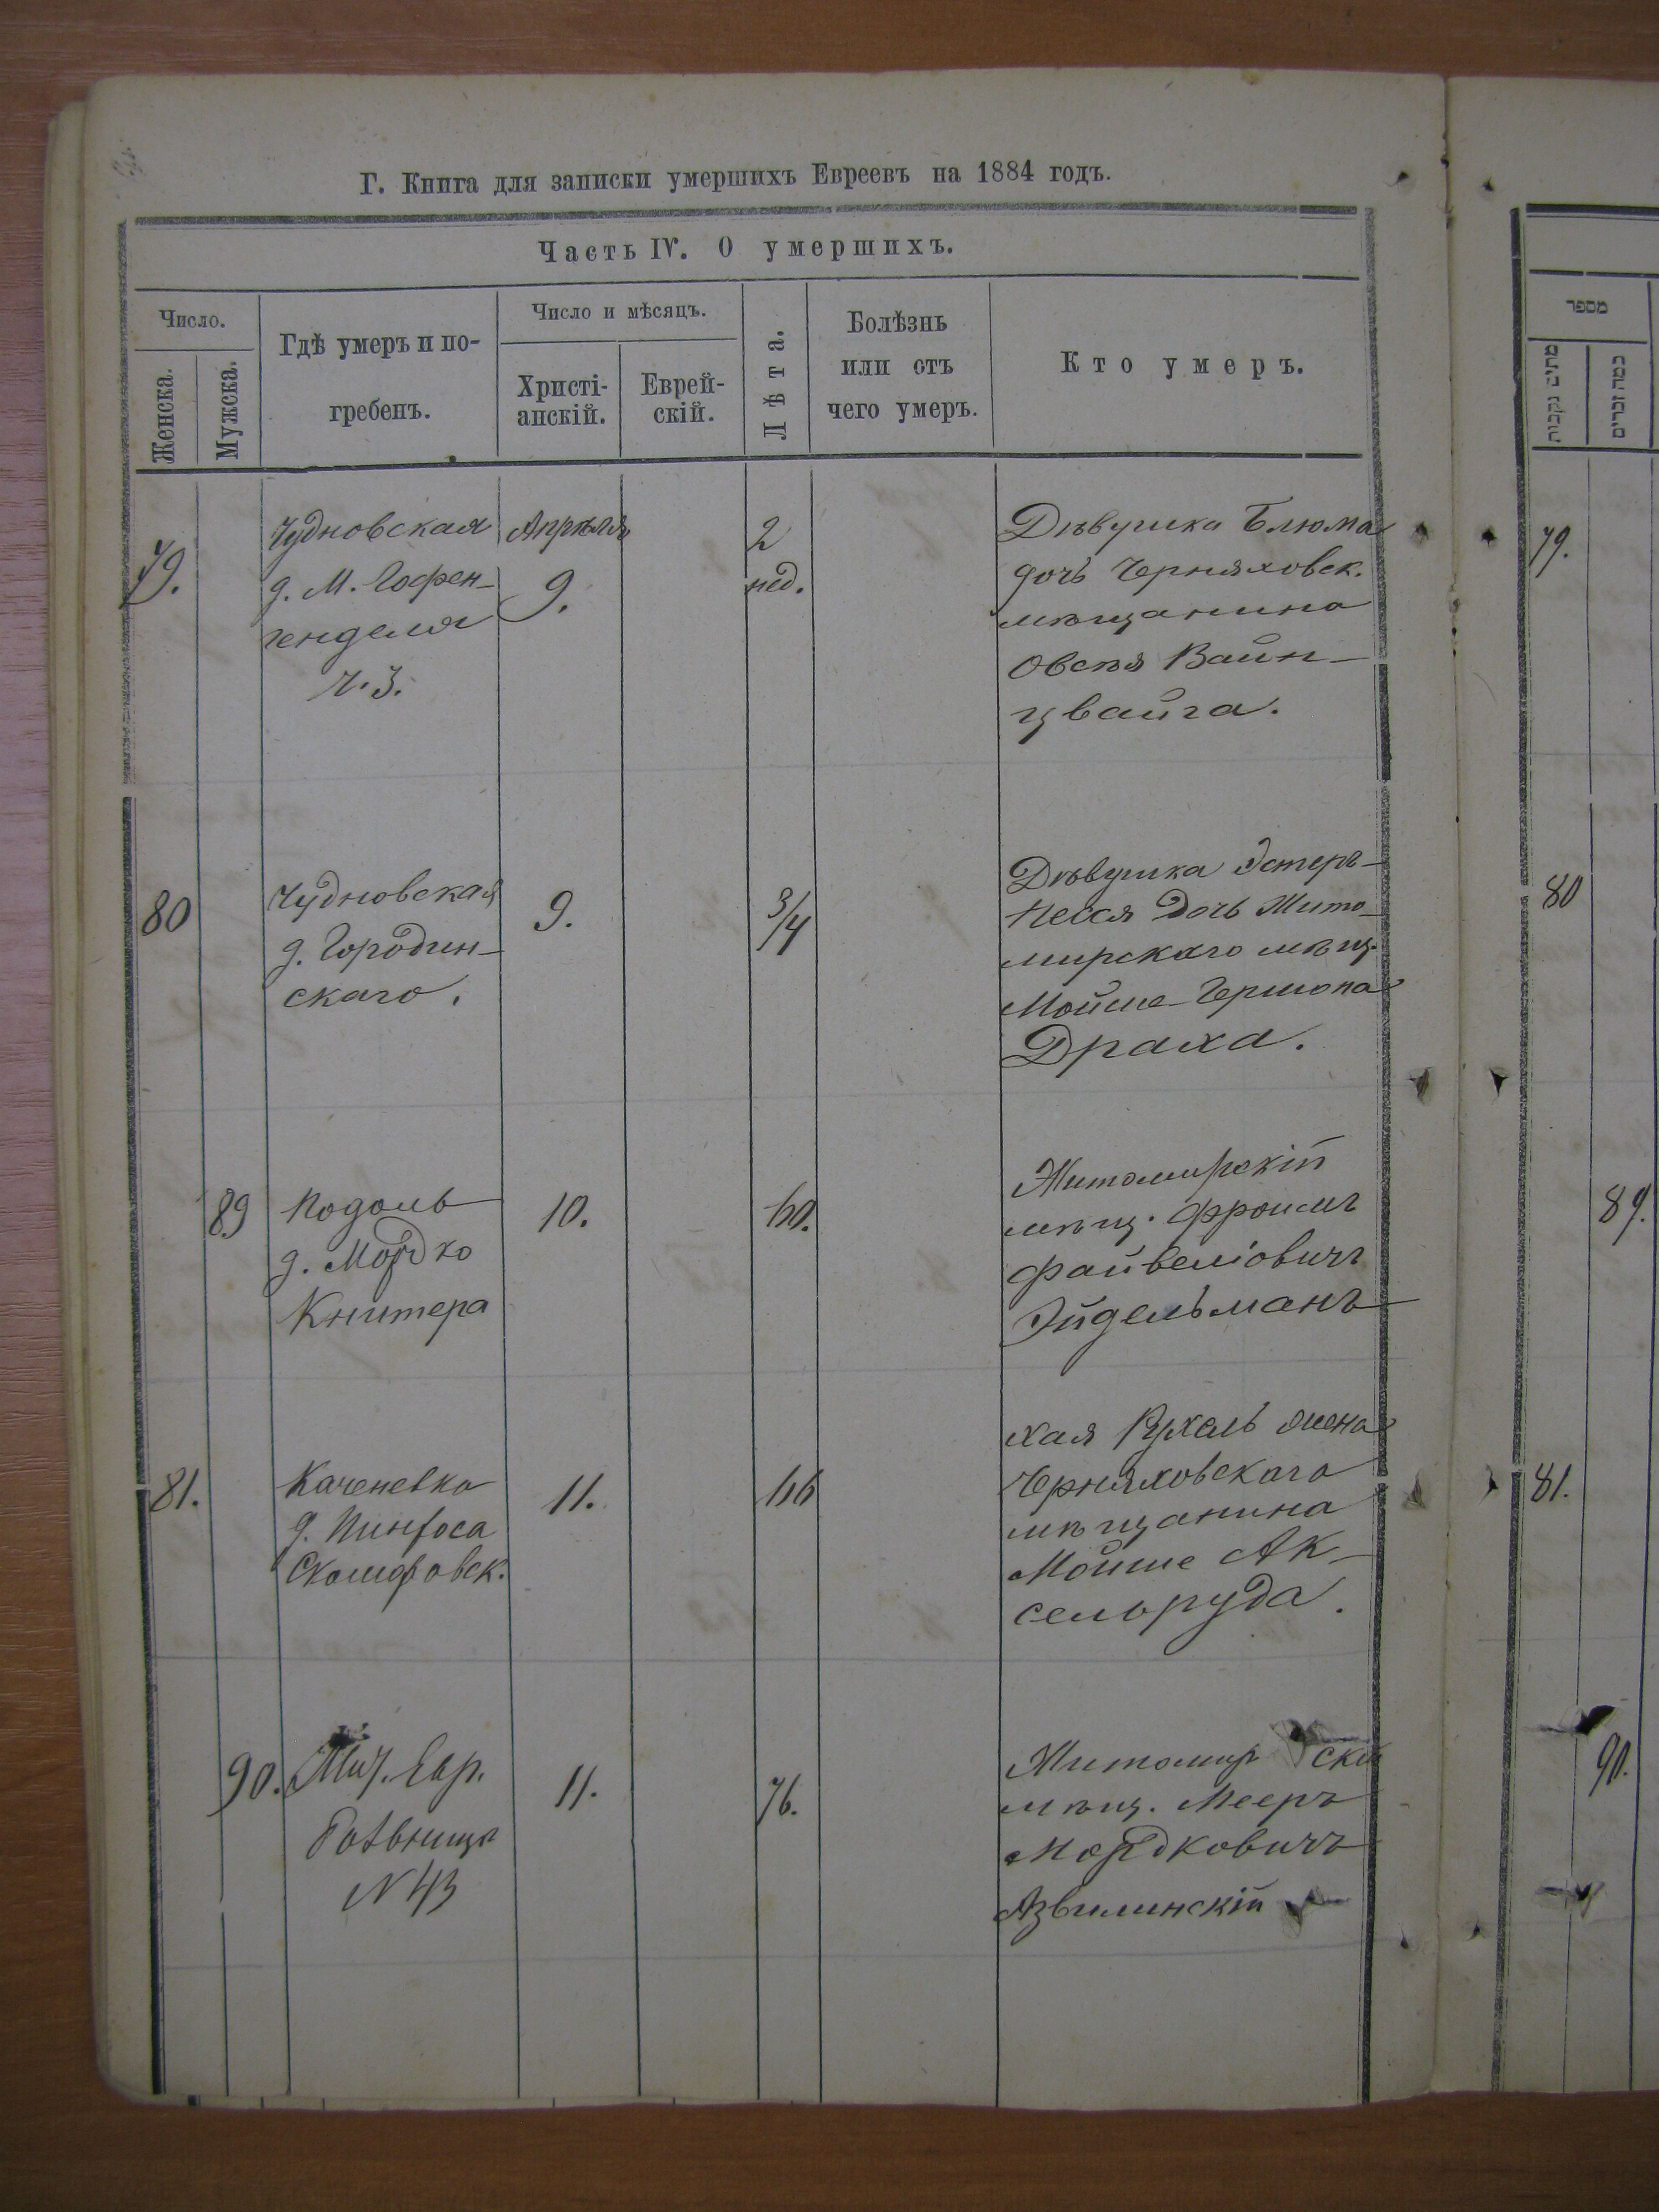 Г. Книга для записки умершихъ Евреевъ на 1884 годъ.
Часть IV. О умершихъ.
Число.
Женска.
Мужска.
Гдѣ умеръ и по-
гребенъ.
Число и мѣсяцъ.
Христі-
анскій.
Еврей-
скій.
Лѣта.
Болѣзнь
или отъ
чего умеръ.
Кто умеръ.
79.
Чудновская
д. М. Гофен-
генделя
Ч. 3.
Апрѣля
9.
2
нед.
Дѣвушка Блюма
дочь Черняховск.
мѣщанина
Овсѣя Вайн-
цвайга.
80
Чудновская
д. Городин-
скаго.
9.
3/4
Дѣвушка Эстеръ-
Песся Дочь Жито-
мирскаго мѣщ.
Мойше-Гершона
Драха.
89
Подоль
д. Мордко
Книтера
10.
60.
Житомирскій
мѣщ. Фроимъ
Файвеліовичъ
Эйдельманъ
81.
Каченевка
д. Пинхоса
11.
66
Хая Рухель жена
Черняховскаго
мѣщанина
Мойше Ак-
сельруда.
90.
Жит. Евр.
N 43
11.
76.
Житомирскій
мѣщ. Мееръ
Мордковичъ
Азвилинскій
מספר
מתים נקבות
כמה זכרים
79.
80
89.
81.
90.